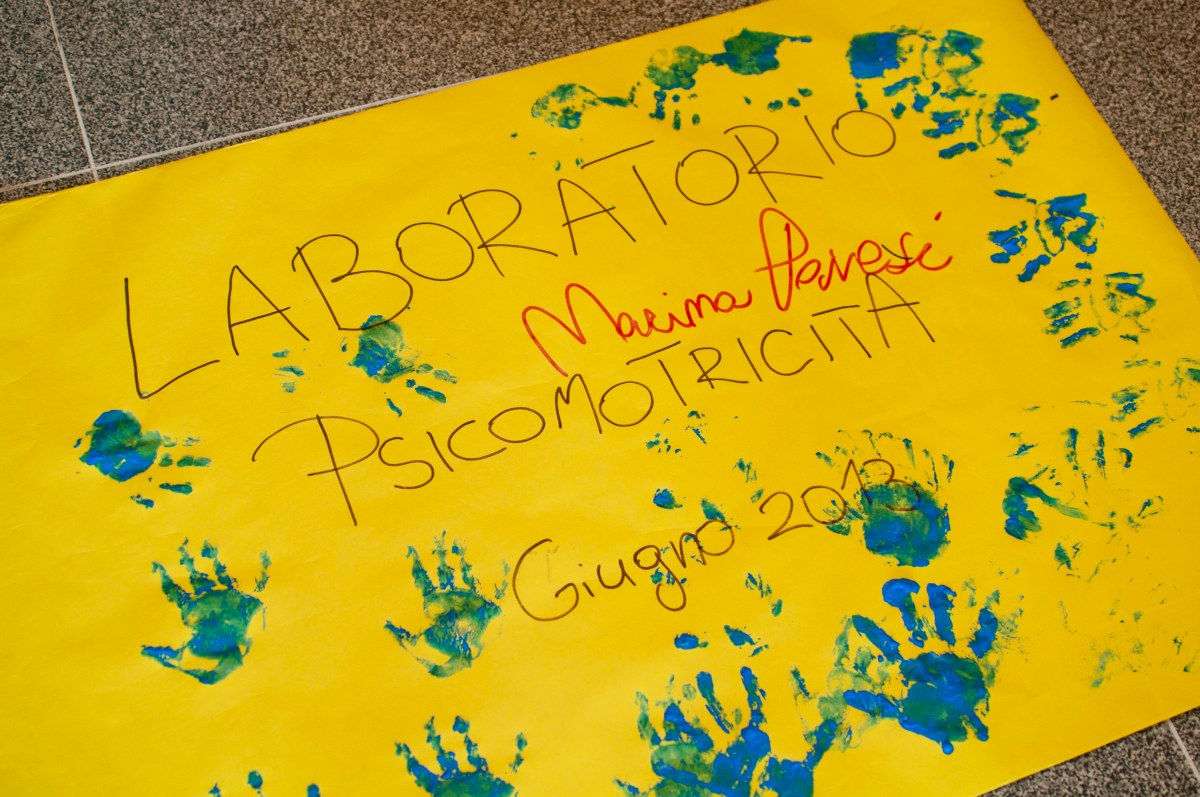 LABORATORIO
Marina Pavesi
PSICOMOTRICITA
Giugno 2013